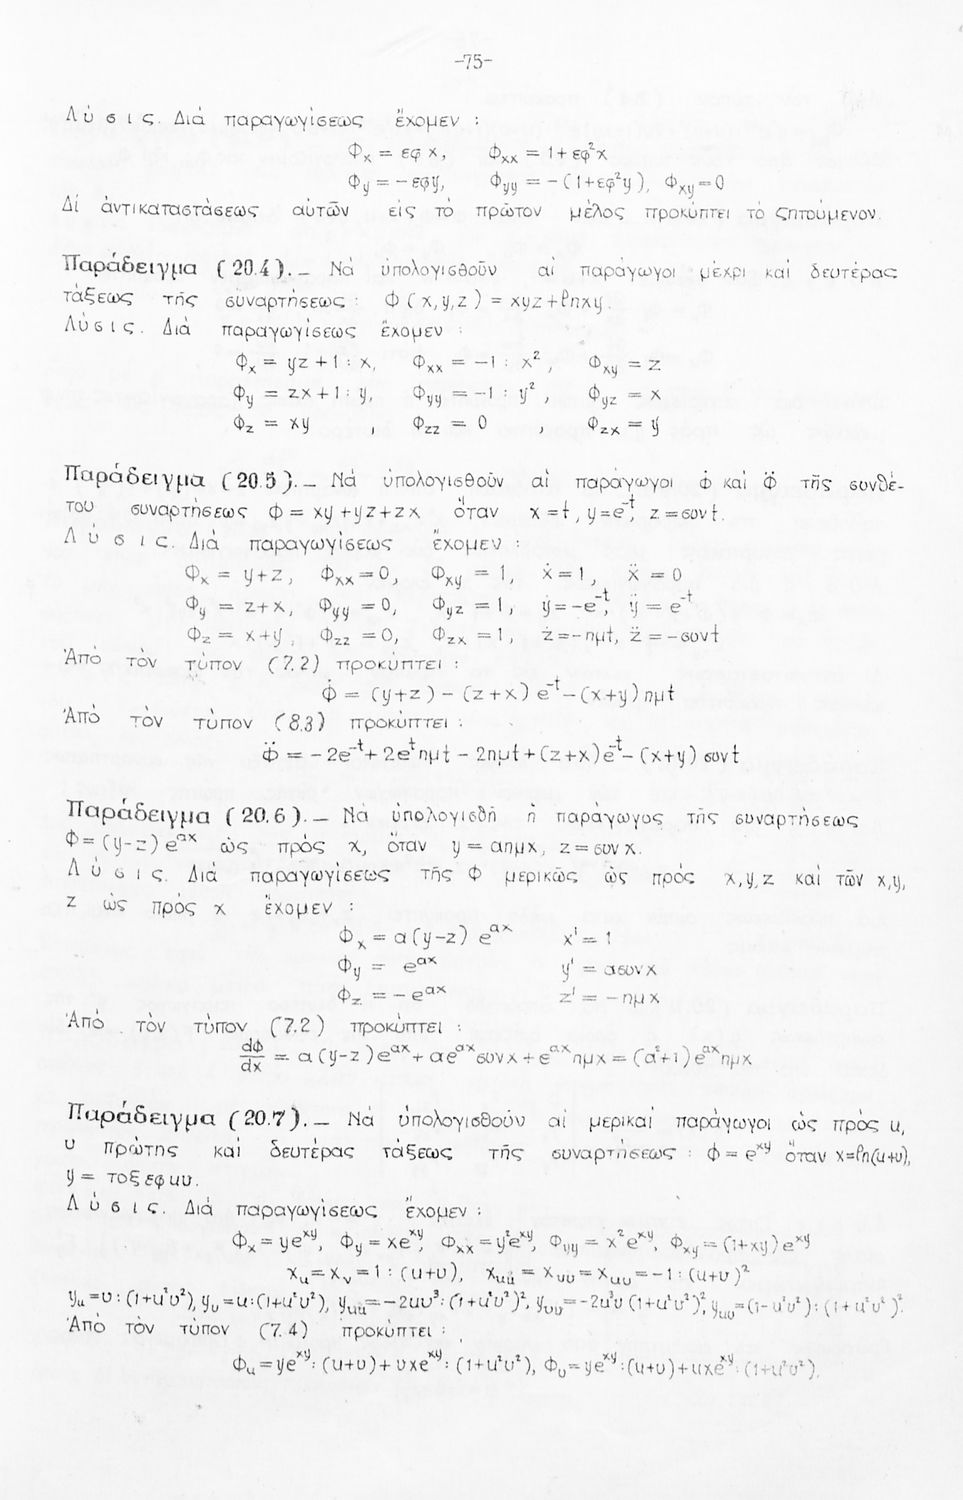 -75-
Λύσις. Διά παραγωγίσεως ἔχομεν :
Φₓ = εφ x, Φₓₓ = 1 + εφ²x
Φ_y = - εφy, Φ_yy = - (1+εφ²y), Φ_xy = 0
Δί ἀντικαταστάσεως αὐτῶν εἰς τό πρῶτον μέλος προκύπτει τό ζητούμενον.
Παράδειγμα (20.4). — Νά ὑπολογισθοῦν αἱ παράγωγοι μέχρι καί δευτέρας
τάξεως τῆς συναρτήσεως : Φ(x,y,z) = xyz + ℓnxy.
Λύσις. Διά παραγωγίσεως ἔχομεν :
Φ_x = yz + 1 : x, Φ_xx = -1 : x², Φ_xy = z
Φ_y = zx + 1 : y, Φ_yy = -1 : y², Φ_yz = x
Φ_z = xy , Φ_zz = 0 , Φ_zx = y
Παράδειγμα (20.5). — Νά ὑπολογισθοῦν αἱ παράγωγοι Φ̇ καί Φ̈ τῆς συνθέ-
του συναρτήσεως Φ = xy + yz + zx ὅταν x = t, y = e^-t, z = συνt.
Λύσις. Διά παραγωγίσεως ἔχομεν :
Φ_x = y+z, Φ_xx = 0, Φ_xy = 1, ẋ = 1, ẍ = 0
Φ_y = z+x, Φ_yy = 0, Φ_yz = 1, ẏ = -e^-t, ÿ = e^-t
Φ_z = x+y, Φ_zz = 0, Φ_zx = 1, ż = -ημt, z̈ = -συνt
Ἀπό τόν τύπον (7.2) προκύπτει :
Φ̇ = (y+z) - (z+x) e^-t - (x+y) ημt
Ἀπό τόν τύπον (8.3) προκύπτει :
Φ̈ = - 2e^-t + 2e^-t ημt - 2ημt + (z+x)e^-t - (x+y) συνt
Παράδειγμα (20.6). — Νά ὑπολογισθῆ ἡ παράγωγος τῆς συναρτήσεως
Φ = (y-z) e^αx ὡς πρός x, ὅταν y = αημx, z = συν x.
Λύσις. Διά παραγωγίσεως τῆς Φ μερικῶς ὡς πρός x,y,z καί τῶν x,y,
z ὡς πρός x ἔχομεν :
Φ_x = α(y-z) e^αx x' = 1
Φ_y = e^αx y' = ασυνx
Φ_z = - e^αx z' = - ημx
Ἀπό τόν τύπον (7.2) προκύπτει :
dΦ/dx = α(y-z)e^αx + αe^αx συνx + e^αx ημx = (α²+1)e^αx ημx
Παράδειγμα (20.7). — Νά ὑπολογισθοῦν αἱ μερικαί παράγωγοι ὡς πρός u,
υ πρώτης καί δευτέρας τάξεως τῆς συναρτήσεως : Φ = e^xy ὅταν x = ℓn(u+υ),
y = τοξεφuυ.
Λύσις. Διά παραγωγίσεως ἔχομεν :
Φ_x = ye^xy, Φ_y = xe^xy, Φ_xx = y²e^xy, Φ_yy = x²e^xy, Φ_xy = (1+xy)e^xy
x_u = x_υ = 1 : (u+υ), x_uu = x_υυ = x_uυ = -1 : (u+υ)²
y_u = υ : (1+u²υ²), y_υ = u : (1+u²υ²), y_uu = -2uυ³ : (1+u²υ²)², y_υυ = -2u³υ (1+u²υ²)², y_uυ = (1-u²υ²) : (1+u²υ²)².
Ἀπό τόν τύπον (7.4) προκύπτει :
Φ_u = ye^xy : (u+υ) + υxe^xy : (1+u²υ²), Φ_υ = ye^xy : (u+υ) + uxe^xy : (1+u²υ²).